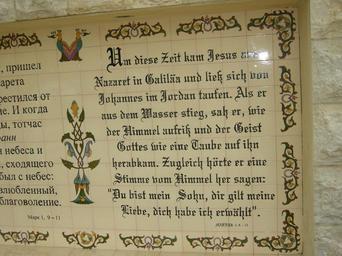 пришел
И когда
тотчас
небеса и
сходящего
был с небес:
благоволение.
Марк 1, 9 – 11
Um diese Zeit kam Jesus aus
Nazaret in Galiläa und ließ sich von
Johannes im Jordan taufen. Als er
aus dem Wasser stieg, sah er, wie
der Himmel aufriß und der Geist
Gottes wie eine Taube auf ihn
herabkam. Zugleich hörte er eine
Stimme vom Himmel her sagen:
"Du bist mein Sohn, dir gilt meine
Liebe, dich habe ich erwählt".